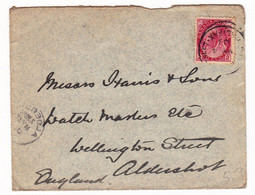 Messrs Harris & Sons
Watch Makers Etc
Wellington Street
Aldershot
England.